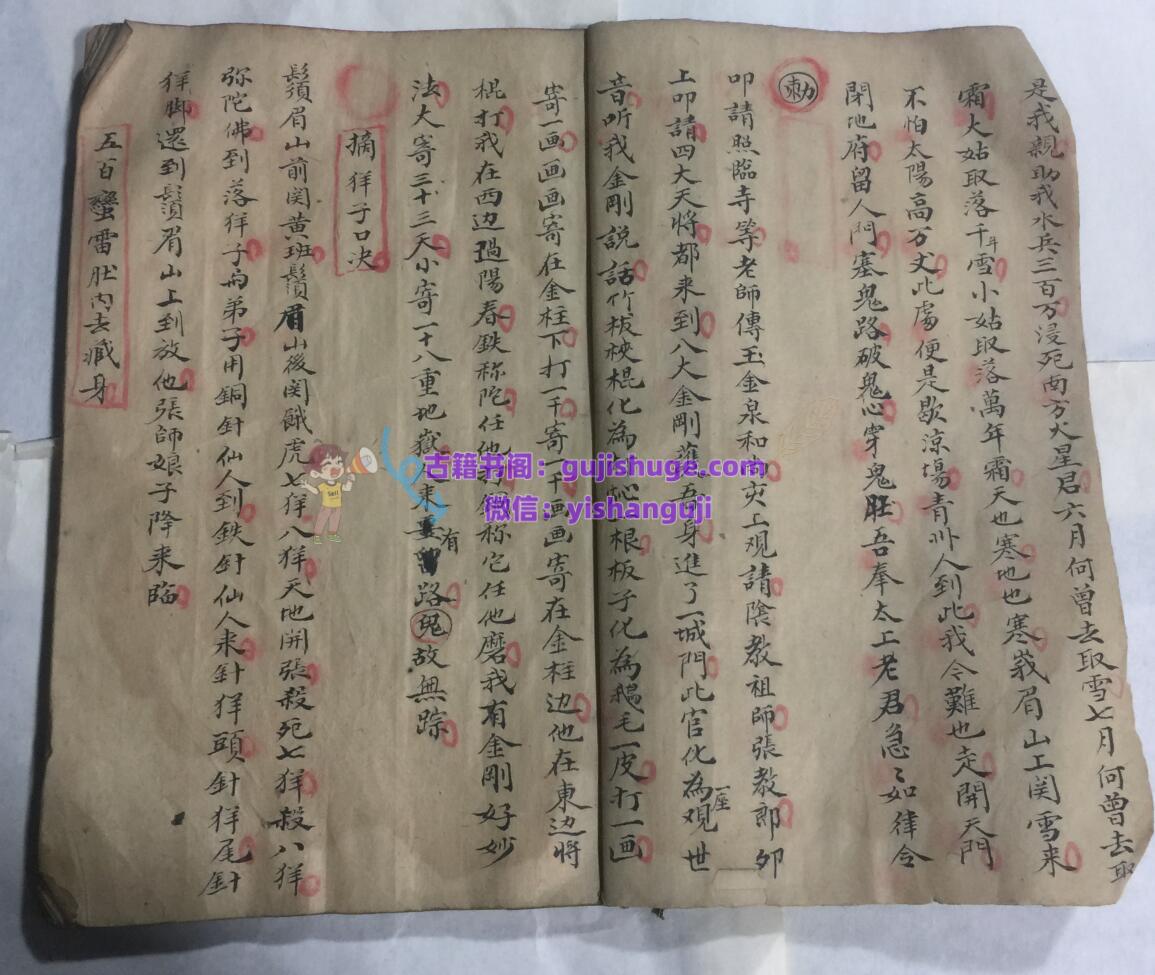 是我親助我水兵三百万浸死南方火星君六月何曾去取雪七月何曾去取
霜大姑取落千年雪小姑取落萬年霜天也寒地也寒峩眉山上関雪来
不怕太陽高万丈此處便是歇涼塲青州人到此我令難也走開天門
閉地府留人門塞鬼路破鬼心穿鬼肚吾奉太上老君急〻如律令
勅
叩請照臨寺等老師傳玉金泉和尚灾上观請陰教祖師張教郎卯
上叩請四大天將都来到八大金剛護吾身進了一城門此官化為一座观世
音听我金剛説話竹板梜棍化為根板子化為鵝毛一皮打一画
寄一画画画寄在金柱下打一千寄一千画画寄在金柱边他在東边將
棍打我在西边過陽春鉄称陀任他称它任他磨我有金剛好妙
法大寄三十三天小寄一十八重地嶽来有路鬼故無踪
摘猚子口决
鬚眉山前関黄班鬚眉山後関餓虎七猚八猚天地開張殺死七猚殺八猚
弥陀佛到落猚子与弟子用銅針仙人到鉄針仙人来針猚頭針猚尾針
猚脚還到鬚眉山上到放他張師娘子降来臨
五百蠻雷肚内去藏身
古籍书阁：gujishuge.com
微信：yishanguji